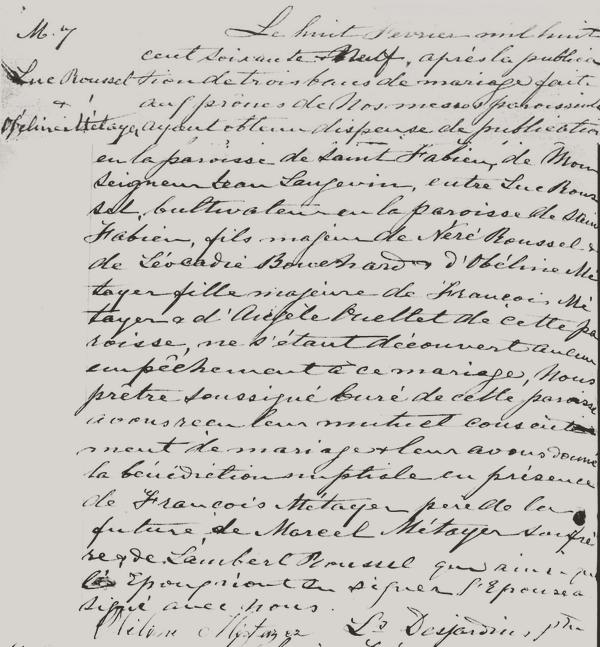 M. 7
Luc Roussel
&
Obéline Métayer
Le huit Fevrier mil huit
cent soixante & Neuf, après la publica
tion de trois bans de mariage faite
aux prônes de Nos messes paroissiale
ayant obtenu dispense de publication
en la paroisse de Saint Fabien, de Mon
seigneur Jean Langevin, entre Luc Rous
sel, Cultivateur en la paroisse de Saint
Fabien, fils majeur de Néré Roussel &
de Léocadie Bouchard & d'Obéline Mé
tayer fille majeure de François Mé
tayer & d'Angèle Ouellet de cette pa
roisse, ne s'étant découvert aucun
empêchement à ce mariage, Nous
prêtre soussigné Curé de cette paroisse
avons reçu leur mutuel consente
ment de mariage & leur avons donné
la bénédiction nuptiale en présence
de François Métayer père de la
future, de Marcel Métayer son frè
re & de Lambert Roussel qui ainsi que
l'Epoux n'ont su signer l'Epouse a
signé avec nous.
Obéline Métayer Ls Desjardins, ptre